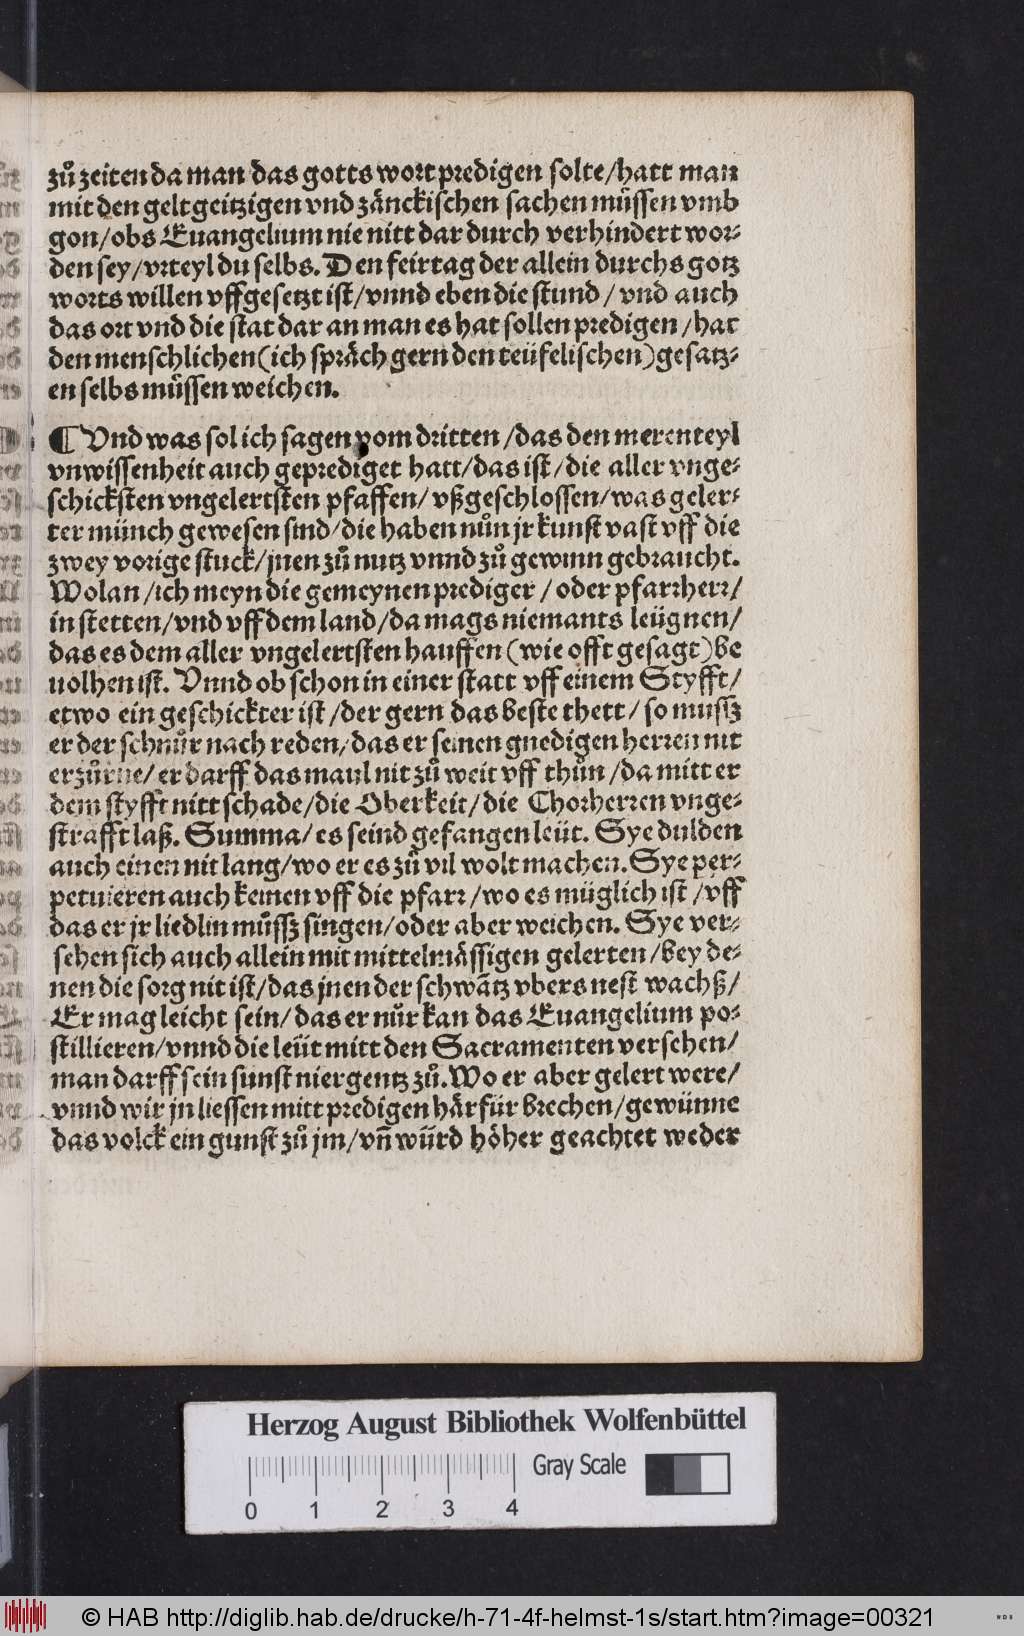 zů zeiten da man das gotts wort predigen solte/hatt man
mit den gelt geitzigen vnd zänckischen sachen müssen vmb
gon/obs Euangelium nie nitt dar durch verhindert wor⸗
den sey/vrteyl du selbs. Den feirtag der allein durchs gotz
worts willen vffgesetzt ist/vnnd eben die stund/ vnd auch
das ort vnd die stat dar an man es hat sollen predigen/hat
den menschlichen(ich spräch gern den teüfelischen)gesatz⸗
en selbs müssen weichen.
¶ Vnd was sol ich sagen vom dritten/das den merenteyl
vnwissenheit auch geprediget hatt/das ist/die aller vnge⸗
schicksten vngelertsten pfaffen/vßgeschlossen/was geler⸗
ter münch gewesen sind/die haben nůn jr kunst vast vff die
zwey vorige stuck/jnen zů nutz vnnd zů gewinn gebraucht.
Wolan/ich meyn die gemeynen prediger/oder pfarrherr/
in stetten/vnd vff dem land/da mags niemants leügnen/
das es dem aller vngelertsten hauffen(wie offt gesagt)be
uolhen ist. Vnnd ob schon in einer statt vff einem Styfft/
etwo ein geschickter ist/der gern das beste thett/so mussz
er der schnůr nach reden/das er seinen gnedigen herren nit
erzůrne/er darff das maul nit zů weit vff thůn/da mitt er
dem styfft nitt schade/die Oberkeit/die Chorherren vnge⸗
strafft laß. Summa/es seind gefangen leüt. Sye dulden
auch einen nit lang/wo er es zů vil wolt machen. Sye per⸗
petuieren auch keinen vff die pfarr/wo es müglich ist/vff
das er jr liedlin müssz singen/oder aber weichen. Sye ver⸗
sehen sich auch allein mit mittelmässigen gelerten/bey de⸗
nen die sorg nit ist/das jnen der schwātz vbers nest wachß/
Er mag leicht sein/das er nůr kan das Euangelium po⸗
stillieren/vnnd die leüt mitt den Sacramenten versehen/
man darff sein sunst niergentz zů. Wo er aber gelert were/
vnnd wir jn liessen mitt predigen härfür brechen/gewünne
das volck ein gunst zů jm/vñ würd höher geachtet weder
Herzog August Bibliothek Wolfenbüttel
Gray Scale
0 1 2 3 4
© HAB http://diglib.hab.de/drucke/h-71-4f-helmst-1s/start.htm?image=00321